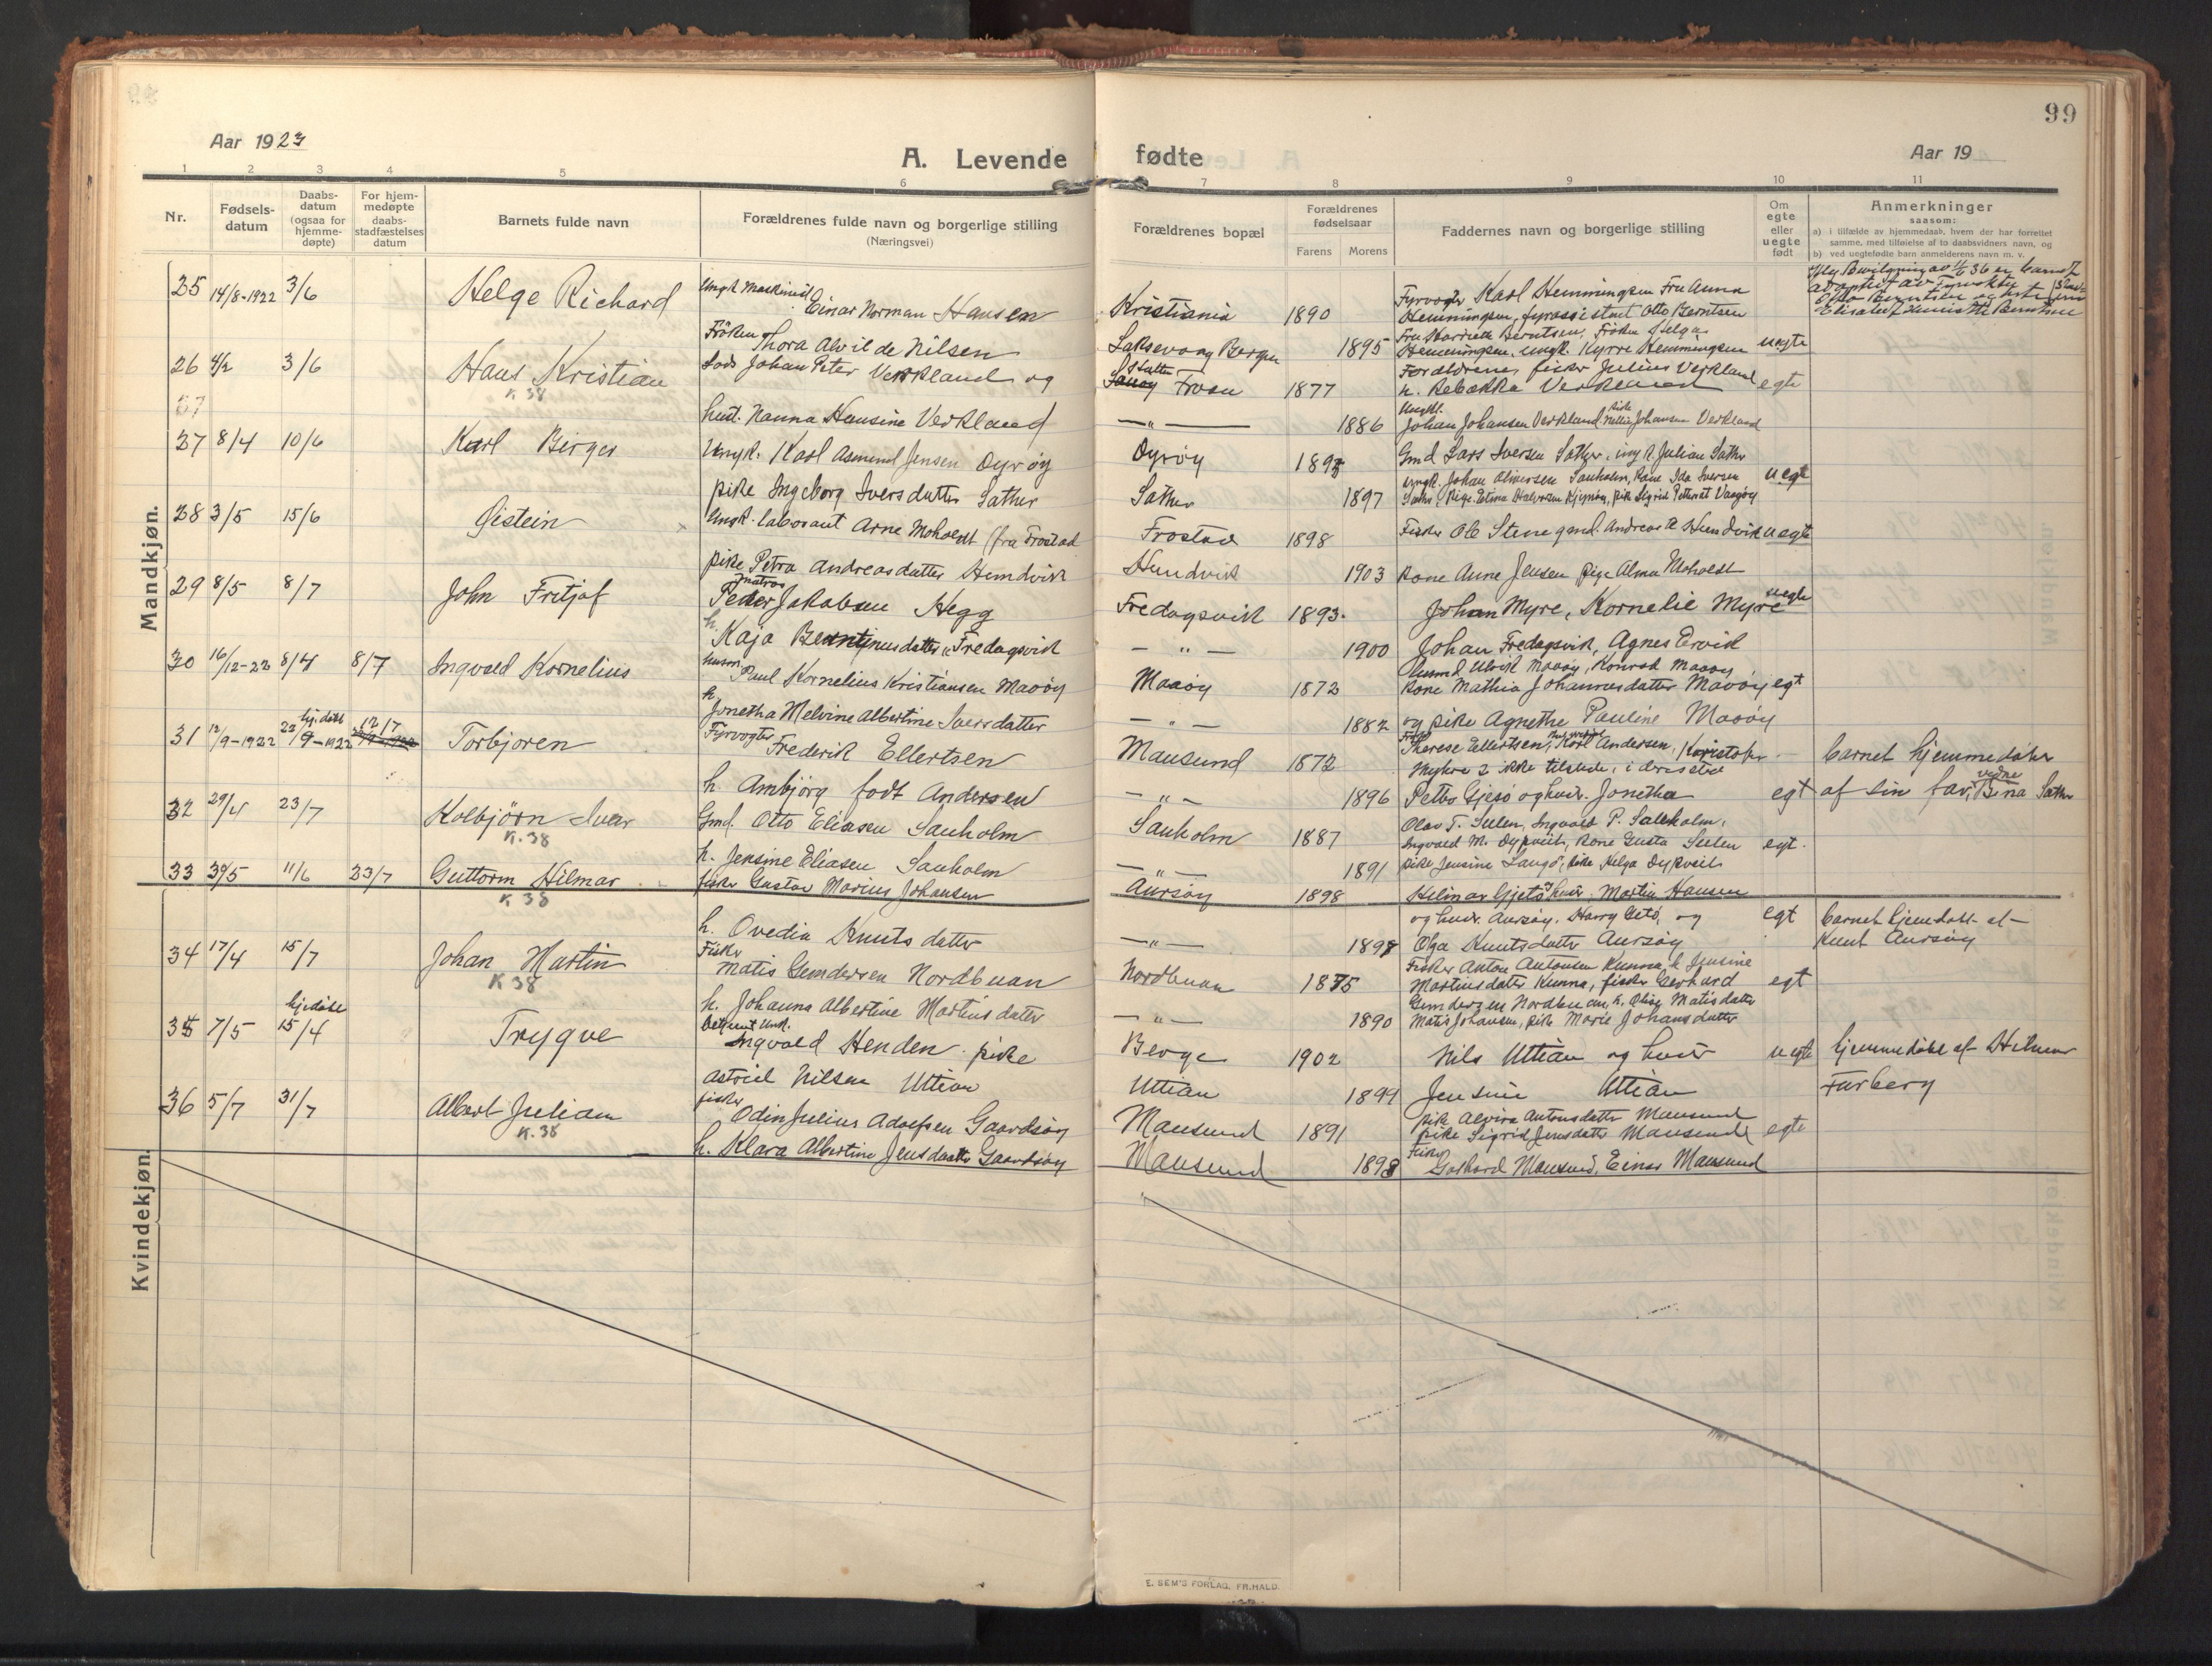 99
Aar 1923
A. Levende fødte
Aar 19
1 2 3 4 5 6 7 8 9 10 11
Nr.
Fødsels-
datum
Daabs-
datum
(ogsaa for
hjemme-
døpte)
For hjem-
medøpte
daabs-
stadfæstelses
datum
Barnets fulde navn
Forældrenes fulde navn og borgerlige stilling
(Næringsvei)
Forældrenes bopæl
Forældrenes
fødselsaar
Farens Morens
Faddernes navn og borgerlige stilling
Om
egte
eller
uegte
født
Anmerkninger
saasom:
a) i tilfælde av hjemmedaab, hvem der har forrettet
samme, med tilføielse af to daabsvidners navn, og
b) ved uegtefødte barn anmelderens navn m. v.
Mandkjøn.
25 14/8-1922 3/6 Helge Richard
Ungk. Maskinist Einar Norman Hansen Kristiania 1890
Fyrvogter Karl Hemmingsen Fru Anna
Hemmingsen, fyrassistent Otto Berntsen
Frøken Thora Alvilde Nilsen Laksevaag Bergen 1895
Fru Harriette Berntsen, Frøken Helga
Hemmingsen, ungk. Kyrre Hemmingsen uegte
26 4/2 3/6 Hans Kristian
K 38
Johan Peter Verkland og Froan 1877
Forældrene, fisker Julius Verkland
h. Rebekka Verkland egte
hust. Nanna Hansine Verkland — " — 1886
Ungk.
Johan Johansen Verkland pike Johansen Verkland
27 8/4 10/6 Karl Birger
Ungk. Karl Asmund Jensen Dyrøy Dyrøy 1893
Gmd Lars Iversen Sæther, ungk. Julian Sæther
pike Ingeborg Iversdatter Sæther Sæther 1897
ungk. Johan Olmersen Sauholm, Kone Ida Iversen uegte
28 3/5 15/6 Øistein
Ungk. laborant Arne Moholdt (fra Frostad Frostad 1898
Fisker Ole Stene gmd. Andreas Hemdvik uegte
pike Petra Andreasdatter Hemdvik Hundvik 1903
Kone Anne Jensen pige Alma Moholdt
29 8/5 8/7 John Fritjof
Matros
Peder Jakobsen Hegg Fredagsvik 1893.
Johan Myre, Kornelie Myre uegte
Kaja Berntinusdatter Fredagsvik — " — 1900
Johan Fredagsvik, Agnes Ervik
30 16/12-22 8/4 8/7 Ingvald Kornelius
husm. Paul Kornelius Kristiansen Maøøy Maøøy 1872
Kone Mathia Johannesdatter Maøøy egt
h.
Jonetha Melvine Albertine Iversdatter — " — 1882
og pike Agnethe Pauline Maøøy
31 12/9-1922 hj. døbt 22/9-1922 12/7 Torbjoren
Fyrvogter
Frederik Ellertsen Mausund 1872
Therese Ellertsen, Karl Andersen, Kristofer
Myhre 2 ikke tilstede, i deres sted
barnet hjemmedøbt
h. Ambjørg født Andersen — " — 1896
Petter Gjesø og hust. Jonetha egt
af sin far,
32 29/4 23/7 Kolbjørn Ivar
K. 38
Gmd. Otto Eliasen Sauholm Sauholm 1887
Olav T. Sulen, Ingvald P. Saltholm,
Ingvald M. Dypveit, Kone Gusta Sulen egt.
h. Jensine Eliasen Sauholm — " — 1891
pike Jensine Langø, pike Helga Dypveit
33 30/5 11/6 23/7 Guttorm Hilmar
K 38
fisker Gustav Marius Johansen Aursøy 1898
Hilmar Gjetø og hust. Martin Hansen
og hust. Aursøy, Harry Getø, og egt
h. Ovedia Knutsdatter — " — 1898
Olga Knutsdatter Aursøy
barnet hjemdøbt af
Knut Aursøy
34 17/4 15/7 Johan Martin
K 38
Fisker
Matis Gundersen Nordbuan Nordbuan 1875
Fisker Anton Antonsen Kunna, h. Jensine
Martinusdatter Kunna, fisker Gerhard egt
h. Johanna Albertine Martinsdatter — " — 1890
Matis Johansen, pike Marie Johansdatter
35 7/5 hjedøbt 15/4 Trygve
Ingvald Henden. pike Berge 1902
Nils Uttian og hust uegte
hjemmedøbt af Hilmar
Astrid Nilsen Uttian Uttian 1899
Jensine Uttian
Farberg
36 5/7 31/7 Albert Julian
K. 38
fisker
Odin Julius Adolfsen Gaardsøy Mausund 1891
pike Alvira Antonsdatter Mausund
pike Sigrid Jensdatter Mausund egte
h. Klara Albertine Jensdatter Gaardsøy Mausund 1898
Fisker
Gerhard Mausund, Einar Mausund
Kvindekjøn.
E. SEM'S FORLAG, FR.HALD.